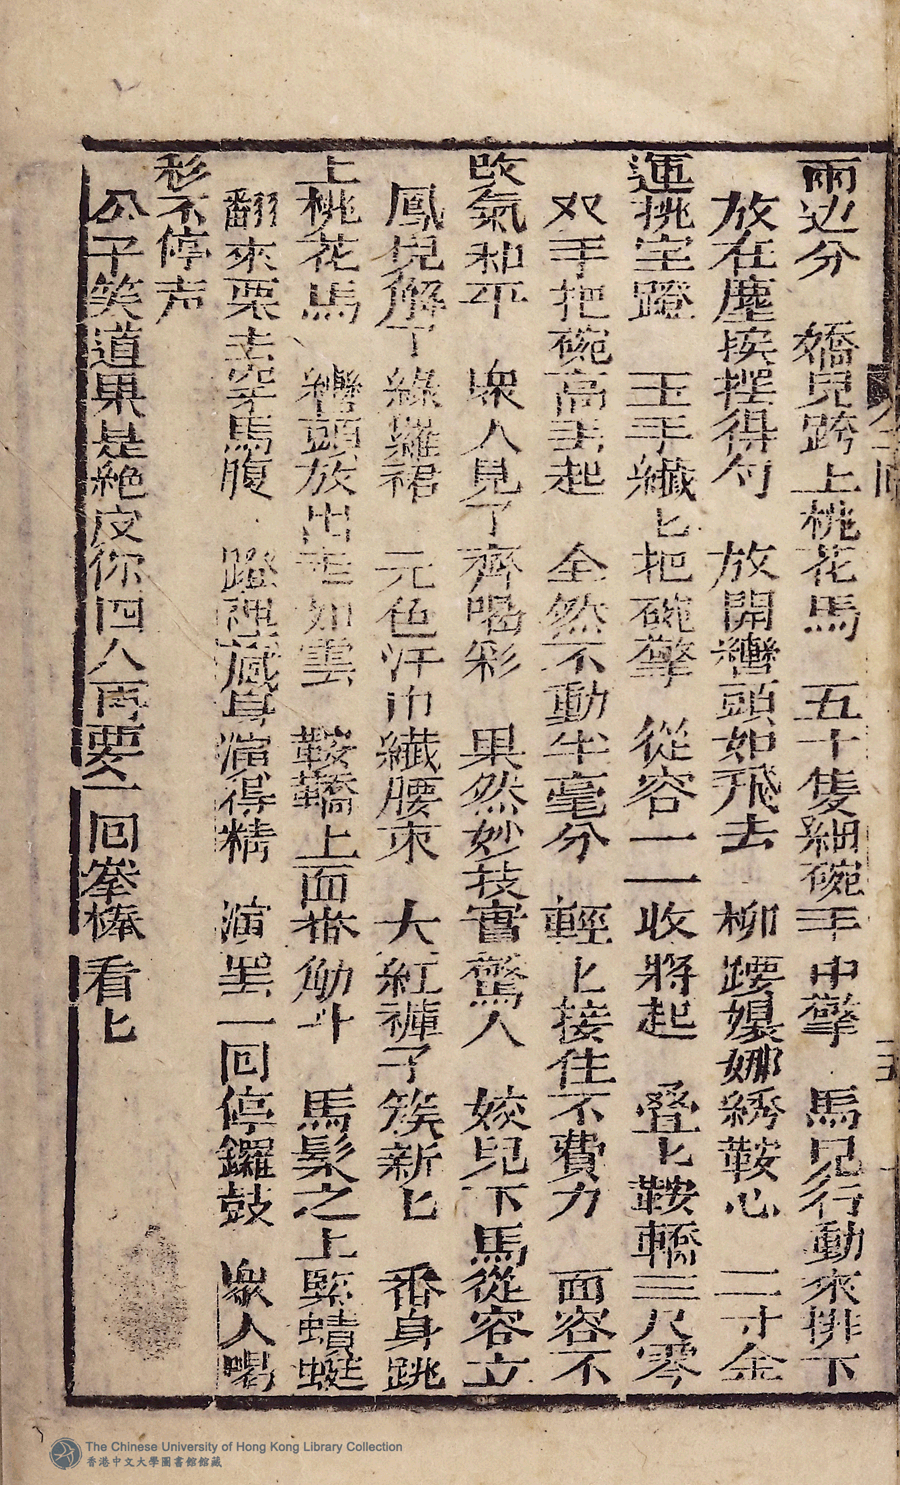 兩边分　嬌兒跨上桃花馬　五十隻細碗手中擎　馬兒行動來排下
放在塵挨摆得勻　放開轡頭如飛去　柳腰嬝娜綉鞍心　二寸金
運挑室蹬　玉手纖匕把碗擎　從容一一收將起　叠匕鞍轎三尺零
双手把碗高丢起　全然不動半毫分　輕匕接住不費力　面容不
改氣和平　衆人見了齊喝彩　果然妙技實驚人　姣兒下馬從容立
鳳兒觧了綠羅裙　元色汗巾纖腰束　大紅褲子簇新匕　番身跳
上桃花馬　轡頭放出走如雲　鞍轎上面番觔斗　馬髮之上監蜻蜓
翻來栗去穿馬腹　蹬裡藏身演得精　演罢一回停鑼鼓　衆人喝
彩不停声
公子笑道果是絶皮你四人再要仝一回拳棒看匕
The Chinese University of Hong Kong Library Collection
香港中文大學圖書館館藏